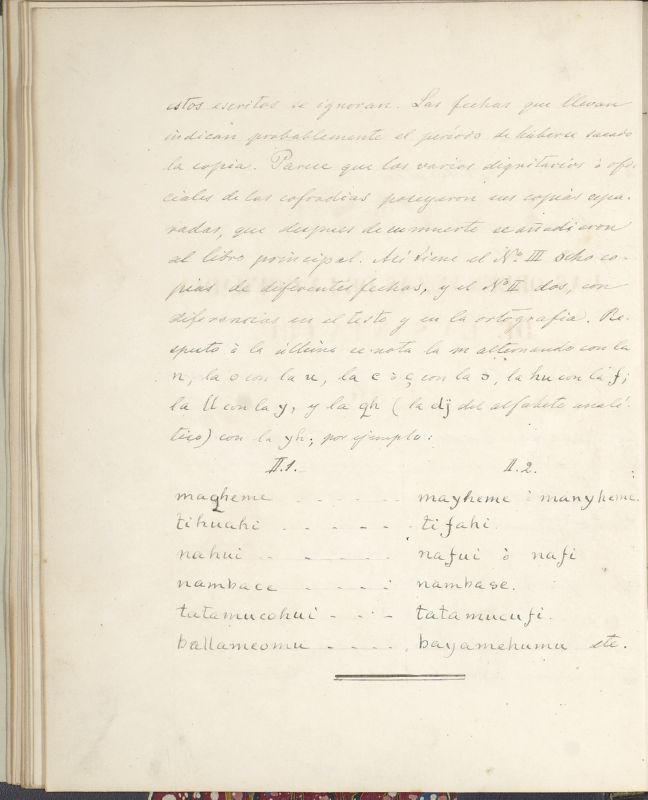 estos escritos se ignoran. Las fechas que llevan
indican probablemente el período de haberse sacado
la copia. Parece que los varios dignitarios ò ofi-
ciales de las cofradias poseyaron sus copias sepa-
radas, que despues de su muerte se añadieron
al libro principal. Asi tiene el Nº III ocho co-
pias de diferentes fechas, y el Nº II dos, con
diferencias en el testo y en la ortografia. Re-
specto à la última se nota la m alternando con la
n, la o con la u, la c ò ç con la s, la hu con la f;
la ll con la y, y la qh ( la dj del alfabeto analí-
tico) con la yh; por ejemplo:
II.1. II.2.
maqheme - - - - - mayheme ò manyheme.
tihuahi - - - - - tifahi.
nahui - - - - - nafui ò nafi
nambace - - - - nambase.
tatamucohui - - - tatamucufi.
ballameomu - - - - bayamehumu etc.